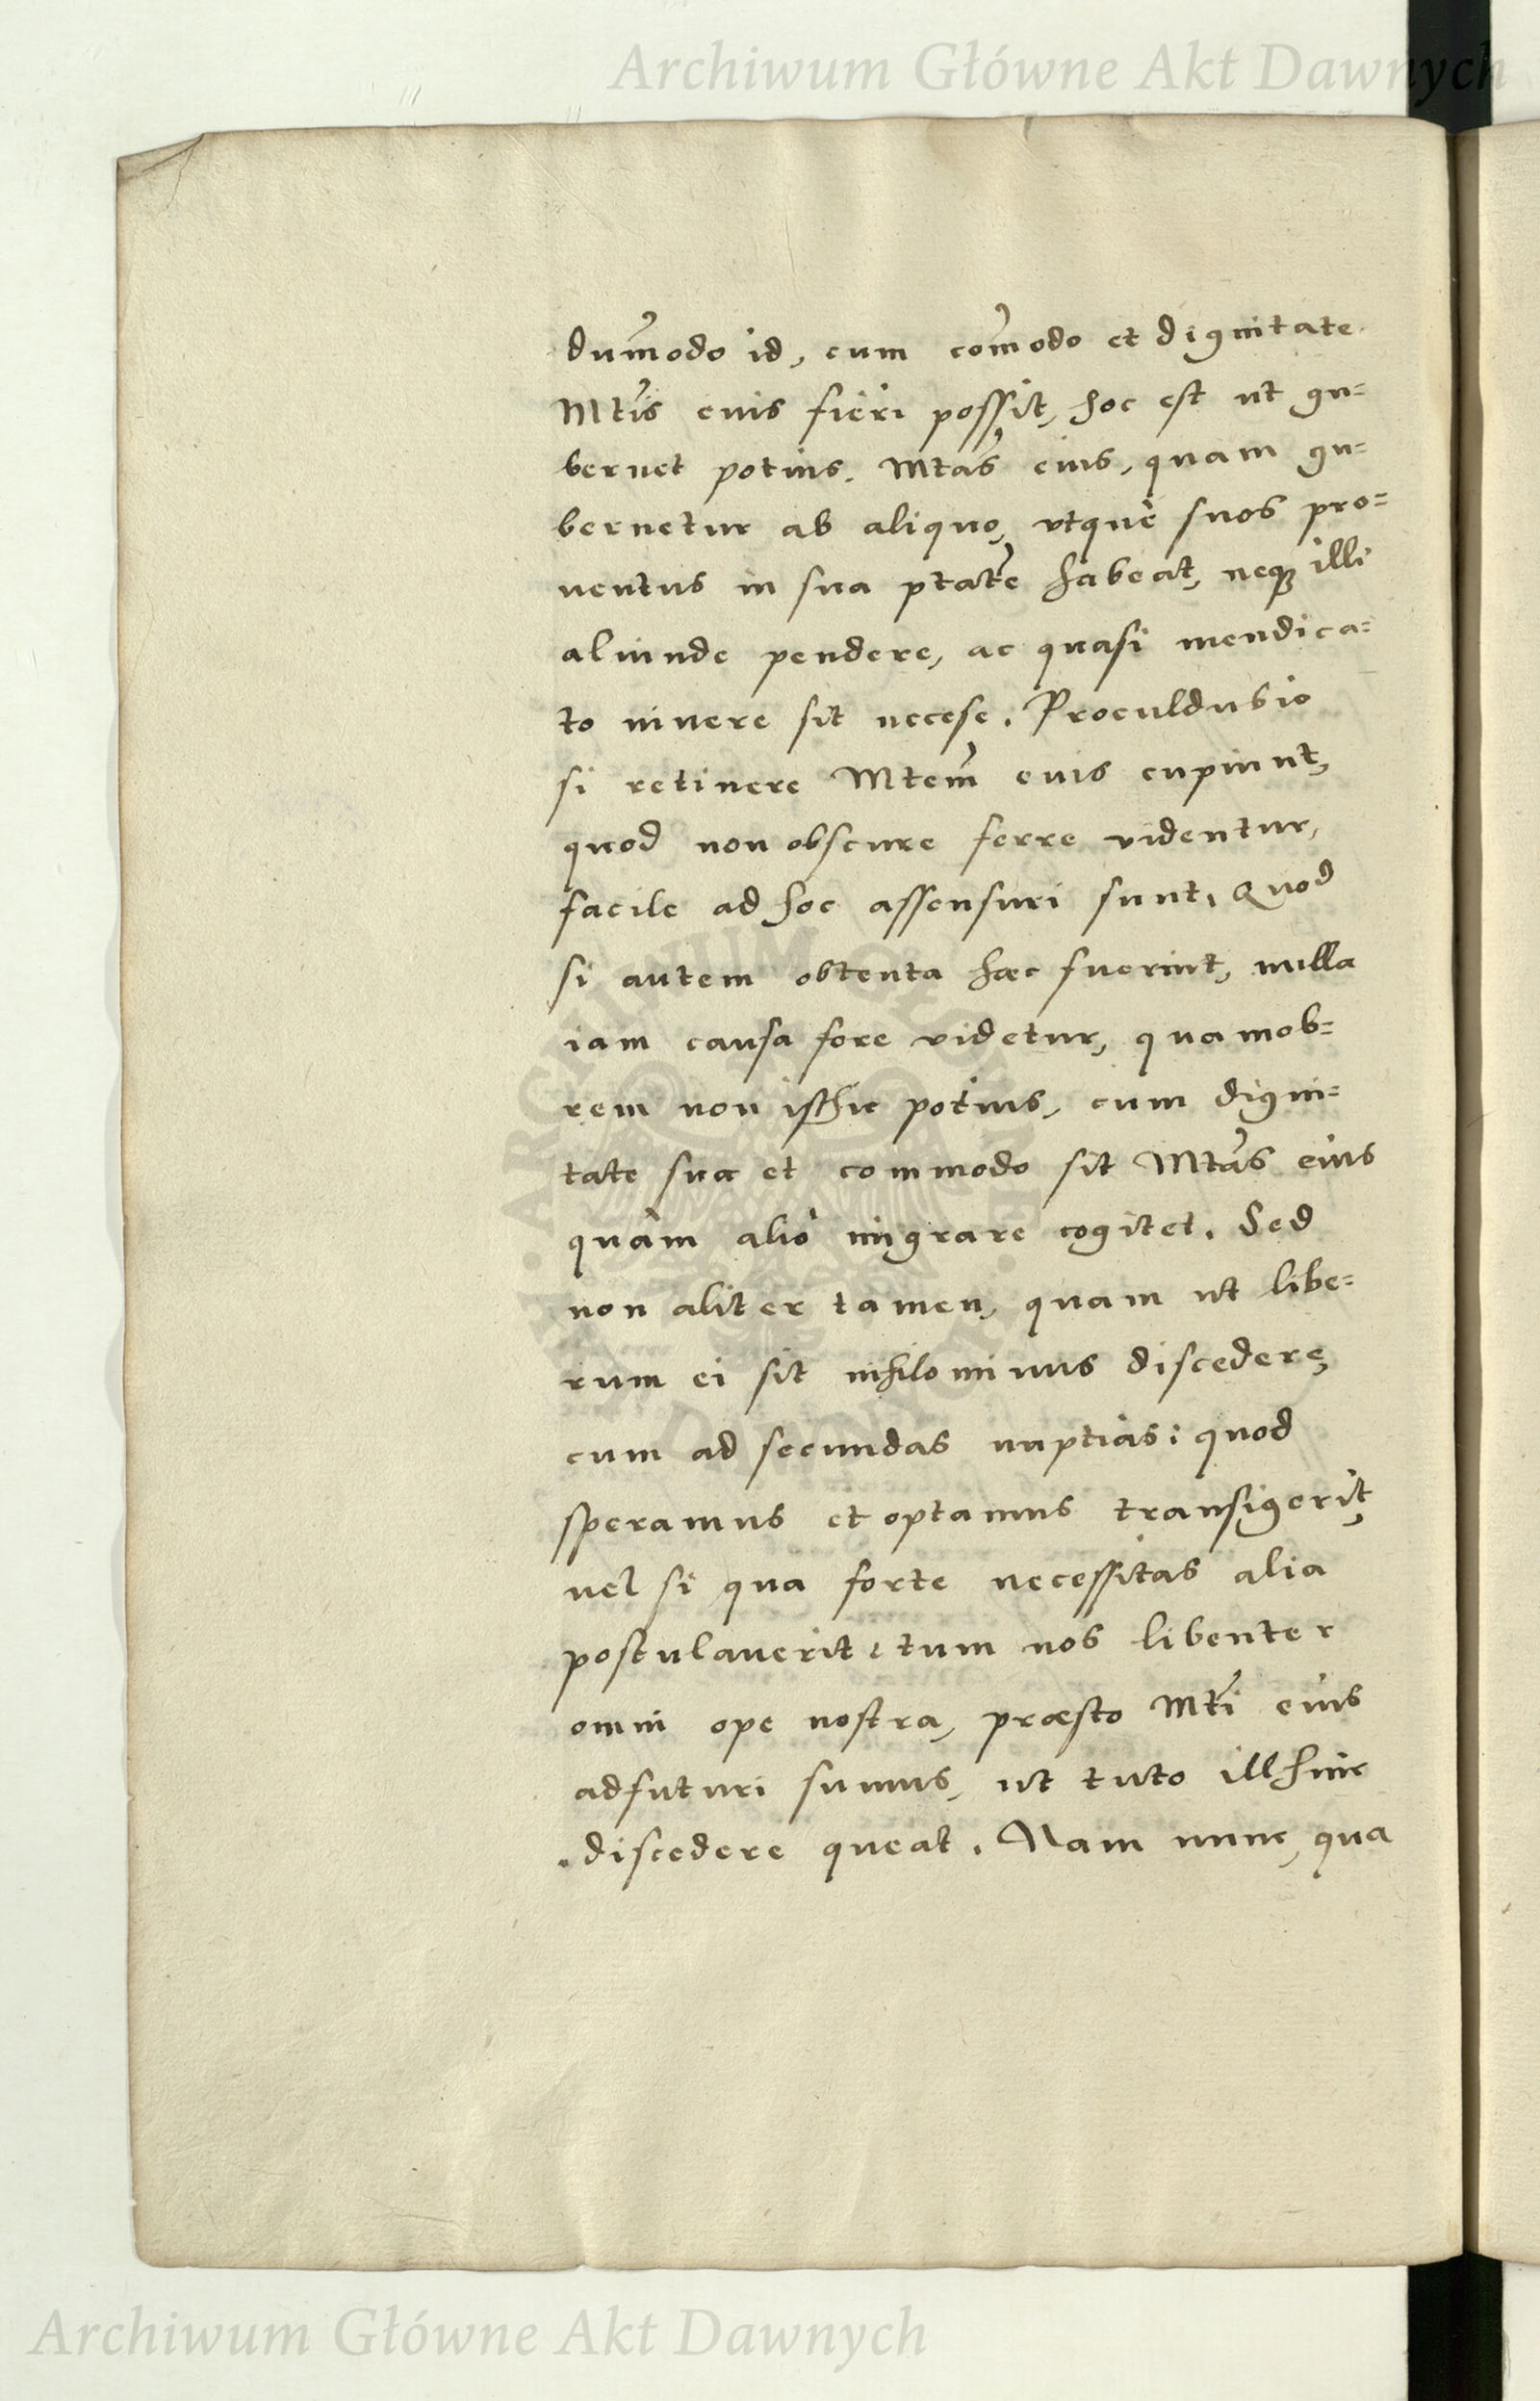 Archiwum Główne Akt Dawnych
dum̃odo id, cum com̃odo et dignitate
Mtis eius fieri possit, hoc est ut gu=
bernet potius. Mtas eius, quam gu=
bernetur ab aliquo, vtquè suos pro=
uentus in sua ptate habeat, neqꝫ illi
aliunde pendere, ac quasi mendica=
to uiuere sit necese. Proculdubio
si retinere Mtem eius cupiunt,
quod non obscure ferre videntur,
facile ad hoc assensuri sunt. Quod
si autem obtenta hæc fuerint, nulla
iam causa fore videtur, quamob=
rem non isthic potius, cum digni=
tate sua et commodo sit Mtas eius
quàm aliò migrare cogitet. Sed
non aliter tamen, quam ut libe=
rum ei sit nihilominus discedere,
cum ad secundas nuptias: quod
speramus et optamus transigerit,
uel si qua forte necessitas alia
postulauerit: tum nos libenter
omni ope nostra, præsto Mti eius
adfuturi sumus, ut tuto illhinc
discedere queat. Nam nunc, qua
Archiwum Główne Akt Dawnych